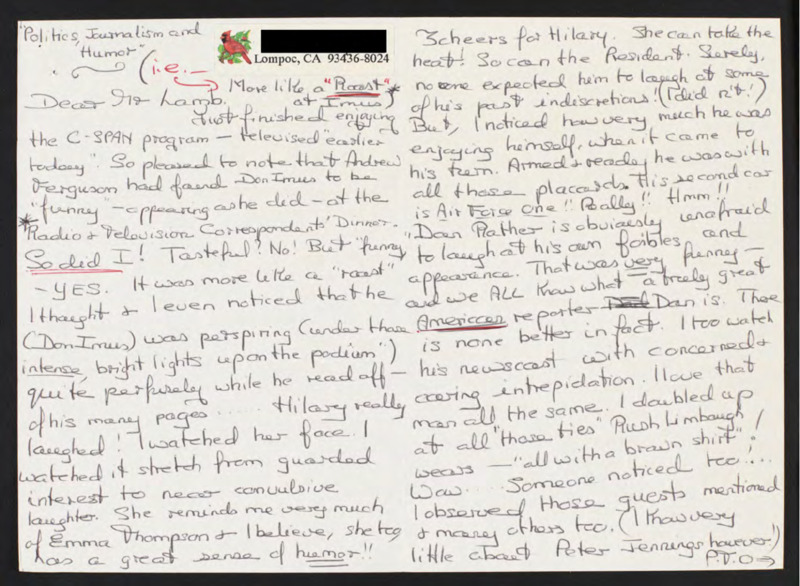 "Politics, Journalism and
Humor"
Lompoc, CA 93436-8024
(i.e. —
More like a "Roast" *
at Imus)
Dear Mr Lamb,
Just finished enjoying
the C-SPAN program — televised "earlier
today". So pleased to note that Andrew
Ferguson had found Don Imus to be
"funny" — appearing as he did — at the
* Radio & Television Correspondents' Dinner.
So did I! Tasteful? No! But "funny"
— YES. It was more like a "roast"
I thought & I even noticed that he
(Don Imus) was perspiring (under those
intense, bright lights upon the podium")
quite perfusely while he read off —
of his many pages ...... Hilary really
laughed! I watched her face. I
watched it stretch from guarded
interest to near convulsive
laughter. She reminds me very much
of Emma Thompson & I believe, she too
has a great sense of humor!!
3 cheers for Hilary. She can take the
heat! So can the President. Surely,
no one expected him to laugh at some
of his past indiscretions! (I did n't!)
But, I noticed how very much he was
enjoying himself, when it came to
his turn. Armed & ready he was with
all those placcards. His second car
is Air Force One!! Really!! Hmm!!
"Dan Rather is obviously unafraid
to laugh at his own foibles and
appearance. That was very funny —
and we ALL know what a truly great
American reporter Dan is. There
is none better in fact. I too watch
his newscast with concerned &
caring intrepidation. I love that
man all the same. I doubled up
at all "those ties" Rush Limbaugh
wears — "all with a brown shirt"!
Wow .... Someone noticed too!..
I observed those guests mentioned
& many others too. (I know very
little about Peter Jennings however!)
P.T.O →